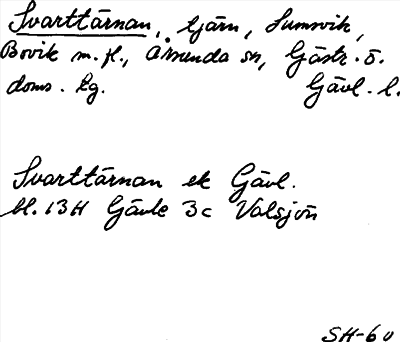 Svarttärnan, tjärn, Sumsvik,
Bovik m. fl., Årsunda sn, Gästr. ö.
doms. tg. Gävl. l.
Svarttärnan ek Gävl.
bl. 13H Gävle 3c Valsjön
SH-60